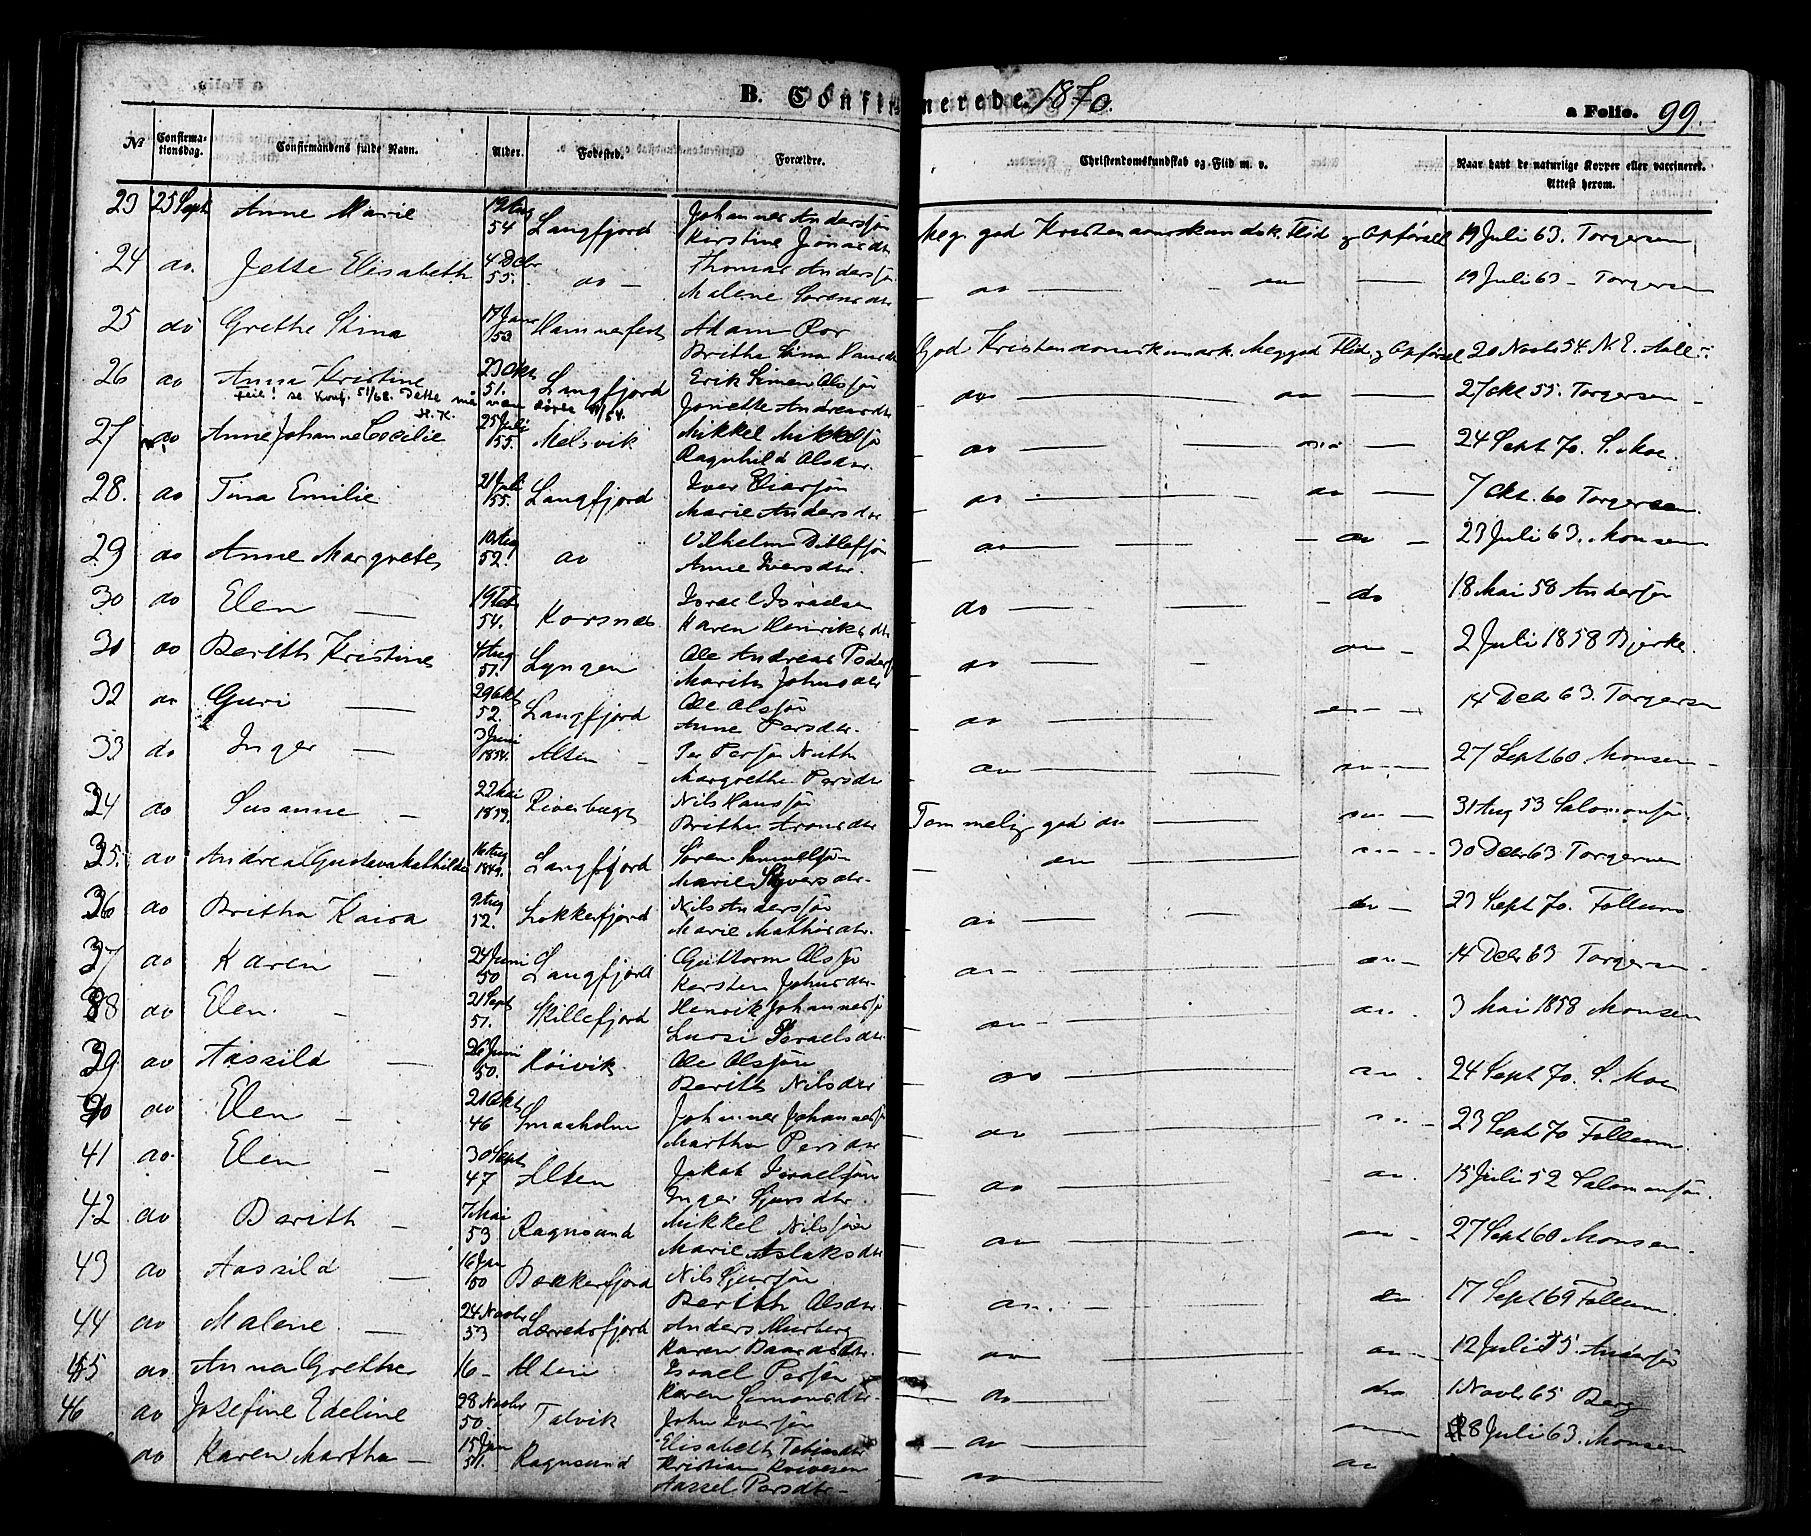 B. Confirmerede. 1870.
a Folio. 99.
No Confirmationsdag. Confirmandens fulde Navn. Alder. Fødested. Forældre. Christendomskundskab og Flid m. v. Naar havt de naturlige Kopper eller vaccineret. Attest herom.
23 25 Sept Anne Marie 19 Aug 54 Langfjord Johannes Andersjøn Kirstine Jonasdtr Meg. god Kristendomskundsk. Flid og Opførsel 19 Juli 63. Torgersen
24 do. Jette Elisabeth 4 Decbr 55. do — Thomas Andersjøn Malene Sørensdtr — do — do — 19 Juli 63 - Torgersen
25 do Grethe Stina 17 Janr 53 Hammerfest Adam Ror Britha Stina Hansdtr God Kristendomskundsk. Meg god Flid og Opførsel 20 Novbr 54 N. E. Aall
26 do Anna Kristine 23 Okt 51. Langfjord Erik Simen Olsjøn Jonette Andreasdtr do — do — 27 Okt 55. Torgersen
feil! se Konf. 51/68. Dette må være H. K.
27 do Anne Johanne Cecilie 25 Juli 55. Melsvik Mikkel Mikkelsjøn Ragnhild Olsdtr. do — do — 24 Sept 70. S. Moe.
28. do Tina Emilie 21 Juli 55. Langfjord Iver Elisasjøn Marie Andersdtr do — do — 7 Okt. 60 Torgersen.
29 do Anne Margrete 10 Aug 52. do Vilhelm Ditlefsjøn Anne Iversdtr. do — do — 23 Juli 63. Monsen
30 do Elen — 19 Feb 54. Korsnæs Israel Israelsen Karen Henriksdtr do — do 18 Mai 58 Andersjøn
31 do Berith Kristine 4 Aug 51. Lyngen Ole Andreas Pedersj Marith Johnsdtr do — do - 2 Juli 1858 Bjerke.
32 do Guri — 29 Okt 52. Langfjord Ole Olsjøn Anne Persdtr. do — do — 14 Decbr 63. Torgersen
33 do Inger — 3 Juni 1854. Alten — Per Persjøn Nuth Margrethe Persdtr do — do — 27 Sept 60. Monsen
34 do Susanne — 22 Mai 1853. Riverbugt Nils Hansjøn Britha Aronsdtr Temmelig god do — do — 31 Aug 53 Salomonsjøn
35. do Andrea Gustava Mathilde 16 Aug 1849. Langfjord Søren Samuelsjøn Marie Syversdtr. — do — do — 30 Decbr 63 Torgersen
36 do Britha Kaisa 9 Aug 52. Lokkerfjord Nils Andersjøn Marie Mathisdtr. do — do — 23 Sept 70. Follum
37 do Karen — 24 Juni 50 Langfjord Guttorm Olsjøn Kersten Johnsdtr do — do — 14 Decbr 63 Torgersen
38 do Elen. — 21 Sept 51. Skillefjord Henrik Johannesjø Lussi Israelsdtr. do — do. 3 Mai 1858 Monsen
39 do Aassild — 26 Juni 50. Røivik. Ole Olsjøn Berith Nilsdtr do — do. 24 Sept 70. S. Moe
40 do Elen — 21 Okt 46 Smaaholm Johannes Johannesjø Martha Persdtr do — do 23 Sept 70 Follum.
41 do. Elen — 30 Sept 47 Alten Jakob Israelsjøn Inger Gjursdtr. do — do. 15 Juli 52 Salomonsjøn.
42 do Berith — 7 Mai 53 Ragnsund Mikkel Nilsjøn Marie Aslaksdtr do — do — 27 Sept 60 Monsen.
43 do Aassild — 16 Jan 50 Bækkerfjord Nils Gjursjøn Berith Olsdtr. do. — do 17 Sept 69 Follum.
44 do Malene — 24 Novbr 53 Lerredsfjord Anders Murberg Karen Baardsdtr. do — do — 12 Juli 55. Andersjøn
45 do Anna Grethe 16 - Alten Israel Persjøn Karen Simonsdtr. do — do 1 Novbr 65 Berg
46 do Josefine Edeline 28 Novbr 50 Talvik John Iversjøn Elisabeth Tobiasdtr — do — do 28 Juli 63. Monsen
do Karen Martha — 15 Jan 51. Ragnsund Kristian Kvivesen Aassel Persdtr — do — do